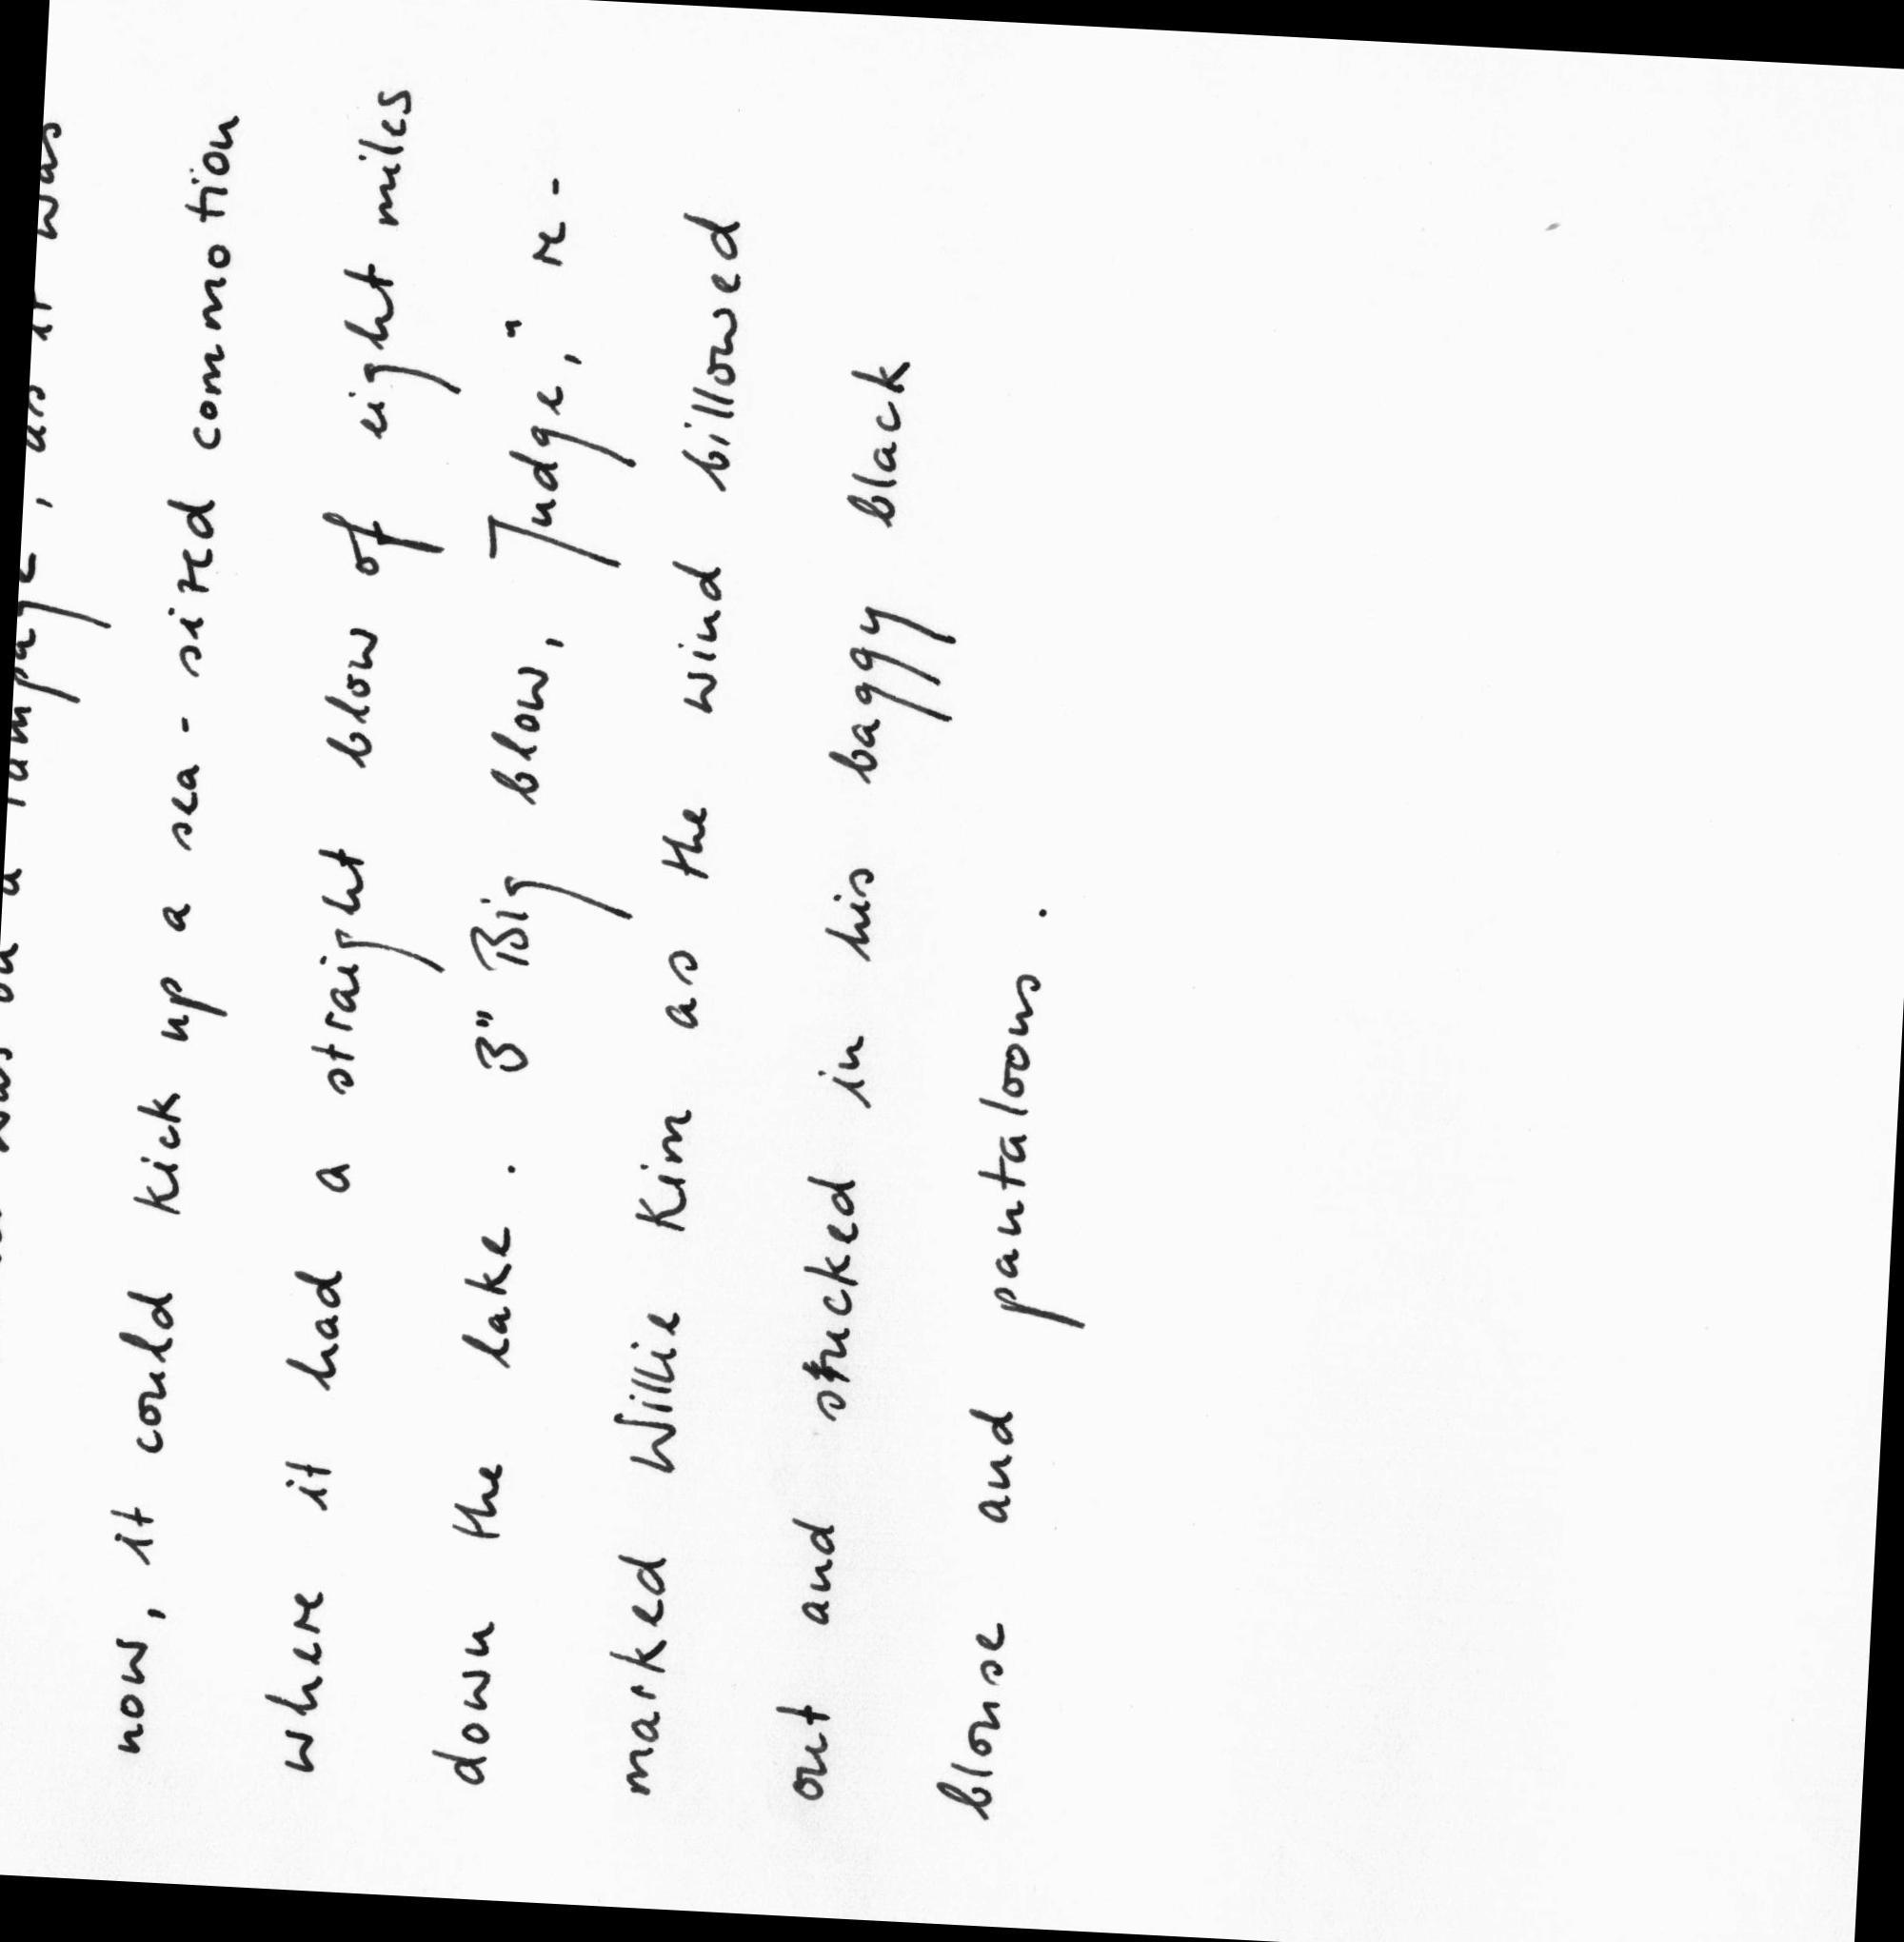 on a rampage, as it was
now, it could kick up a sea-sized commotion
where it had a straight blow of eight miles
down the lake. 3" Big blow, Judge," re-
marked Willie Kim as the wind billowed
out and stucked in his baggy black
blouse and pantaloons.